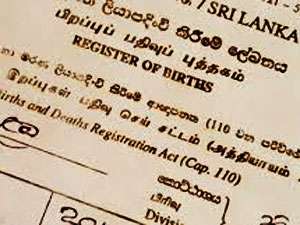 / SRI LANKA
ලියාපදිංචි කිරීමේ ලේඛනය
பிறப்புப் பதிவுப் புத்தகம்
REGISTER OF BIRTHS
මරණ ලියාපදිංචි කිරීමේ ආඥාපනත (110 වන
இறப்புகள் பதிவு செய் சட்டம் (அத்தியாயம்
Births and Deaths Registration Act (Cap. 110)
කොට්ඨාසය
பிரிவு
Division